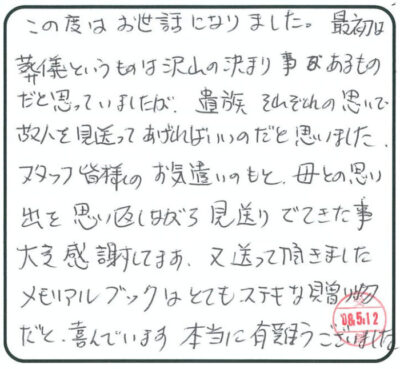 この度はお世話になりました。最初は
葬儀というものは沢山の決まり事があるもの
だと思っていましたが、遺族それぞれの思いで
故人を見送ってあげればいいのだと思いました。
スタッフ皆様のお気遣いのもと、母との思い
出を思い返しながら見送りできた事
大変感謝してます、又送って頂きました
メモリアルブックはとてもステキな贈り物
だと、喜んでいます 本当に有難うございました